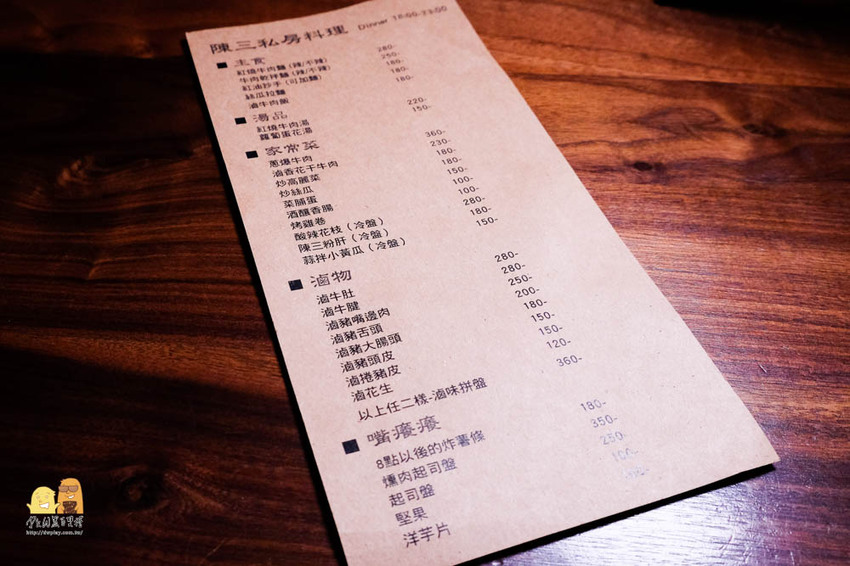 陳三私房料理 Dinner 18:00-23:00
■ 主食
紅燒牛肉麵 (辣/不辣) 280-
牛肉乾拌麵 (辣/不辣) 250-
紅油抄手 (可加麵) 180-
絲瓜拉麵 180-
滷牛肉飯 180-
■ 湯品
紅燒牛肉湯 220-
蘿蔔蛋花湯 150-
■ 家常菜
蔥爆牛肉 360-
滷香花干牛肉 230-
炒高麗菜 180-
炒絲瓜 180-
菜脯蛋 150-
酒釀香腸 100-
烤雞卷 100-
酸辣花枝 (冷盤) 280-
陳三粉肝 (冷盤) 180-
蒜拌小黃瓜 (冷盤) 150-
■ 滷物
滷牛肚 280-
滷牛腱 280-
滷豬嘴邊肉 250-
滷豬舌頭 200-
滷豬大腸頭 180-
滷豬頭皮 150-
滷捲豬皮 150-
滷花生 120-
以上任二樣-滷味拼盤 360-
■ 嘴癢癢
8點以後的炸薯條 180-
燻肉起司盤 350-
起司盤 250-
堅果 100-
洋芋片